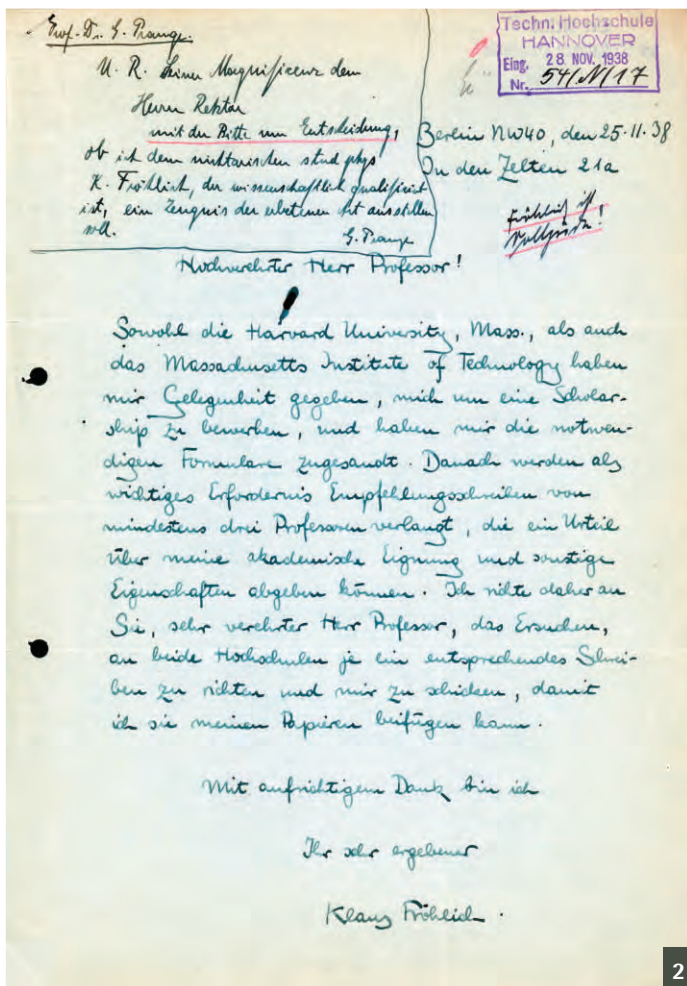 Prof. Dr. G. Prange.
U. R. Seiner Magnificenz dem
Herrn Rektor
mit der Bitte um Entscheidung,
ob ich dem nichtarischen stud phys
K. Fröhlich, der wissenschaftlich qualifiziert
ist, ein Zeugnis der erbetenen Art ausstellen
soll.
G. Prange
Techn. Hochschule
HANNOVER
Eing. 28. NOV. 1938
Nr. 541/N/17
Berlin NW40, den 25.11.38
In den Zelten 21a
Fröhlich ist
Volljude!
Hochverehrter Herr Professor!
Sowohl die Harvard University, Mass., als auch
das Massachusetts Institute of Technology haben
mir Gelegenheit gegeben, mich um eine Scholar-
ship zu bewerben, und haben mir die notwen-
digen Formulare zugesandt. Danach werden als
wichtiges Erfordernis Empfehlungsschreiben von
mindestens drei Professoren verlangt, die ein Urteil
über meine akademische Eignung und sonstige
Eigenschaften abgeben können. Ich richte daher an
Sie, sehr verehrter Herr Professor, das Ersuchen,
an beide Hochschulen je ein entsprechendes Schrei-
ben zu richten und mir zu schicken, damit
ich sie meinen Papieren beifügen kann.
Mit aufrichtigem Dank bin ich
Ihr sehr ergebener
Klaus Fröhlich.
2